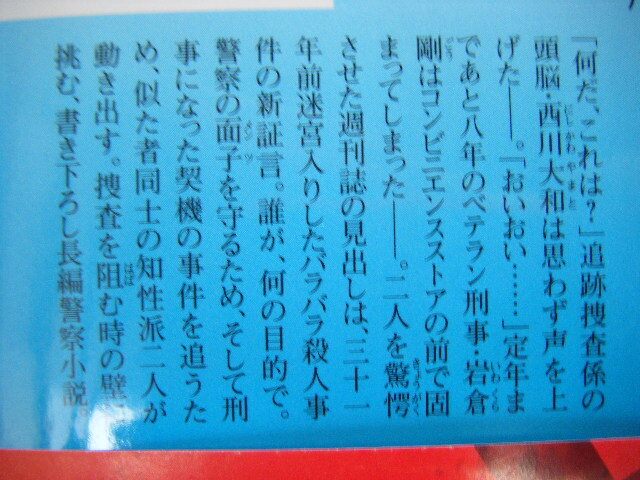 「何だ、これは?」追跡捜査係の
頭脳・西川大和は思わず声を上
げた――。「おいおい……」定年ま
であと八年のベテラン刑事・岩倉
剛はコンビニエンスストアの前で固
まってしまった――。二人を驚愕
させた週刊誌の見出しは、三十一
年前迷宮入りしたバラバラ殺人事
件の新証言。誰が、何の目的で。
警察の面子を守るため、そして刑
事になった契機の事件を追うた
め、似た者同士の知性派二人が
動き出す。捜査を阻む時の壁に
挑む、書き下ろし長編警察小説。